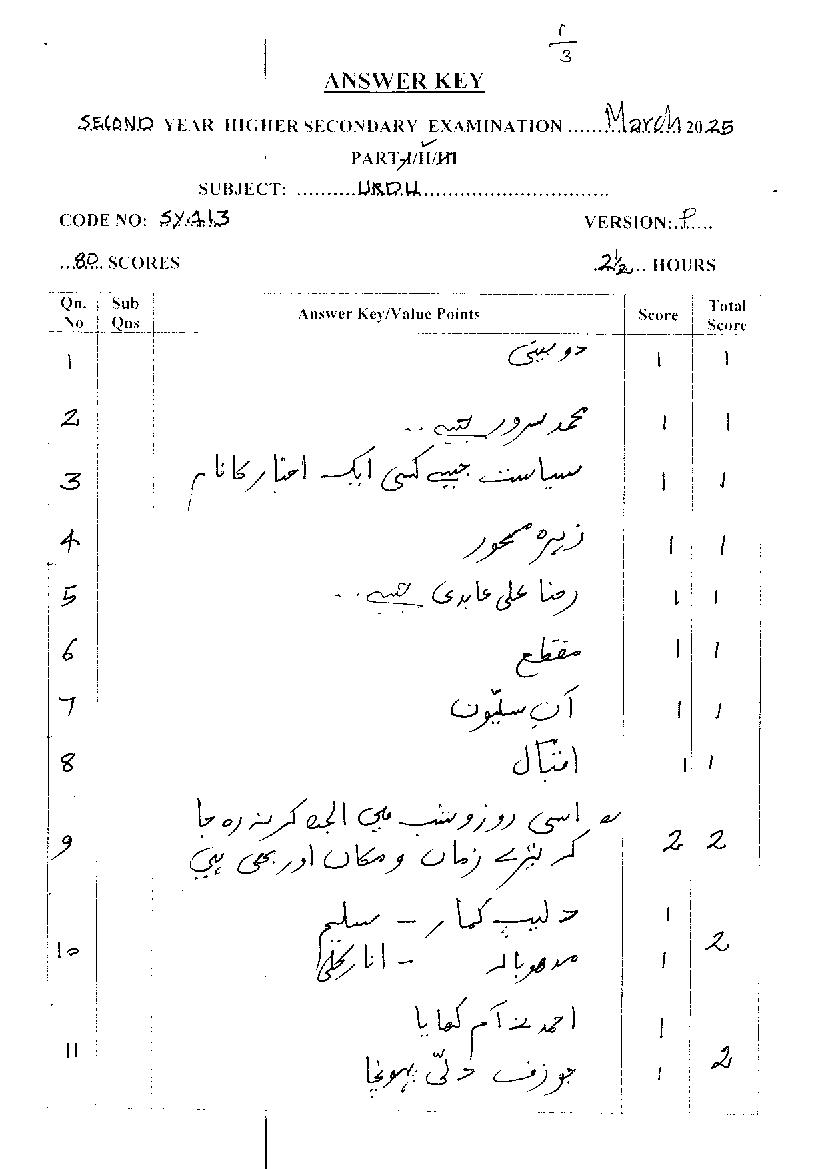 1/3
ANSWER KEY
SECOND YEAR HIGHER SECONDARY EXAMINATION ......March 2025
PART-I/II/III
SUBJECT: ..........URDU................................
CODE NO: SY.413 VERSION:..P.....
...80.. SCORES 2½... HOURS
Qn. No Sub Qns Answer Key/Value Points Score Total Score
1 1 1
2 محمد سرور جیسے .. 1 1
3 سیاست جیسے کسی ایک اخبار کا نام 1 1
4 زہرہ 1 1
5 رضا علی عابدی جیسے .. 1 1
6 مقطع 1 1
7 1 1
8 اقبال 1 1
9 اسی روز و شب میں الجھ کر نہ رہ جا 2 2
کہ تیرے زماں و مکاں اور بھی ہیں
10 دلیپ کمار - سلیم 1 2
مدھوبالہ - انارکلی 1
11 احمد نے آم کھایا 1 2
جوزف دلّی پہونچا 1